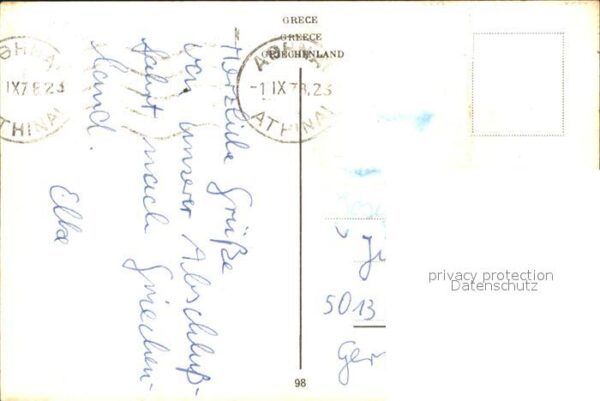 GRECE
GREECE
GRIECHENLAND
ΑΘΗΝΑΙ
-1 IX 78.23
ATHINAI
ΑΘΗΝΑΙ
IX78.23
ATHINAI
Herzliche Grüße
von unserer Abschluß-
fahrt nach Griechen-
land.
5013
Ger
privacy protection
Datenschutz
98